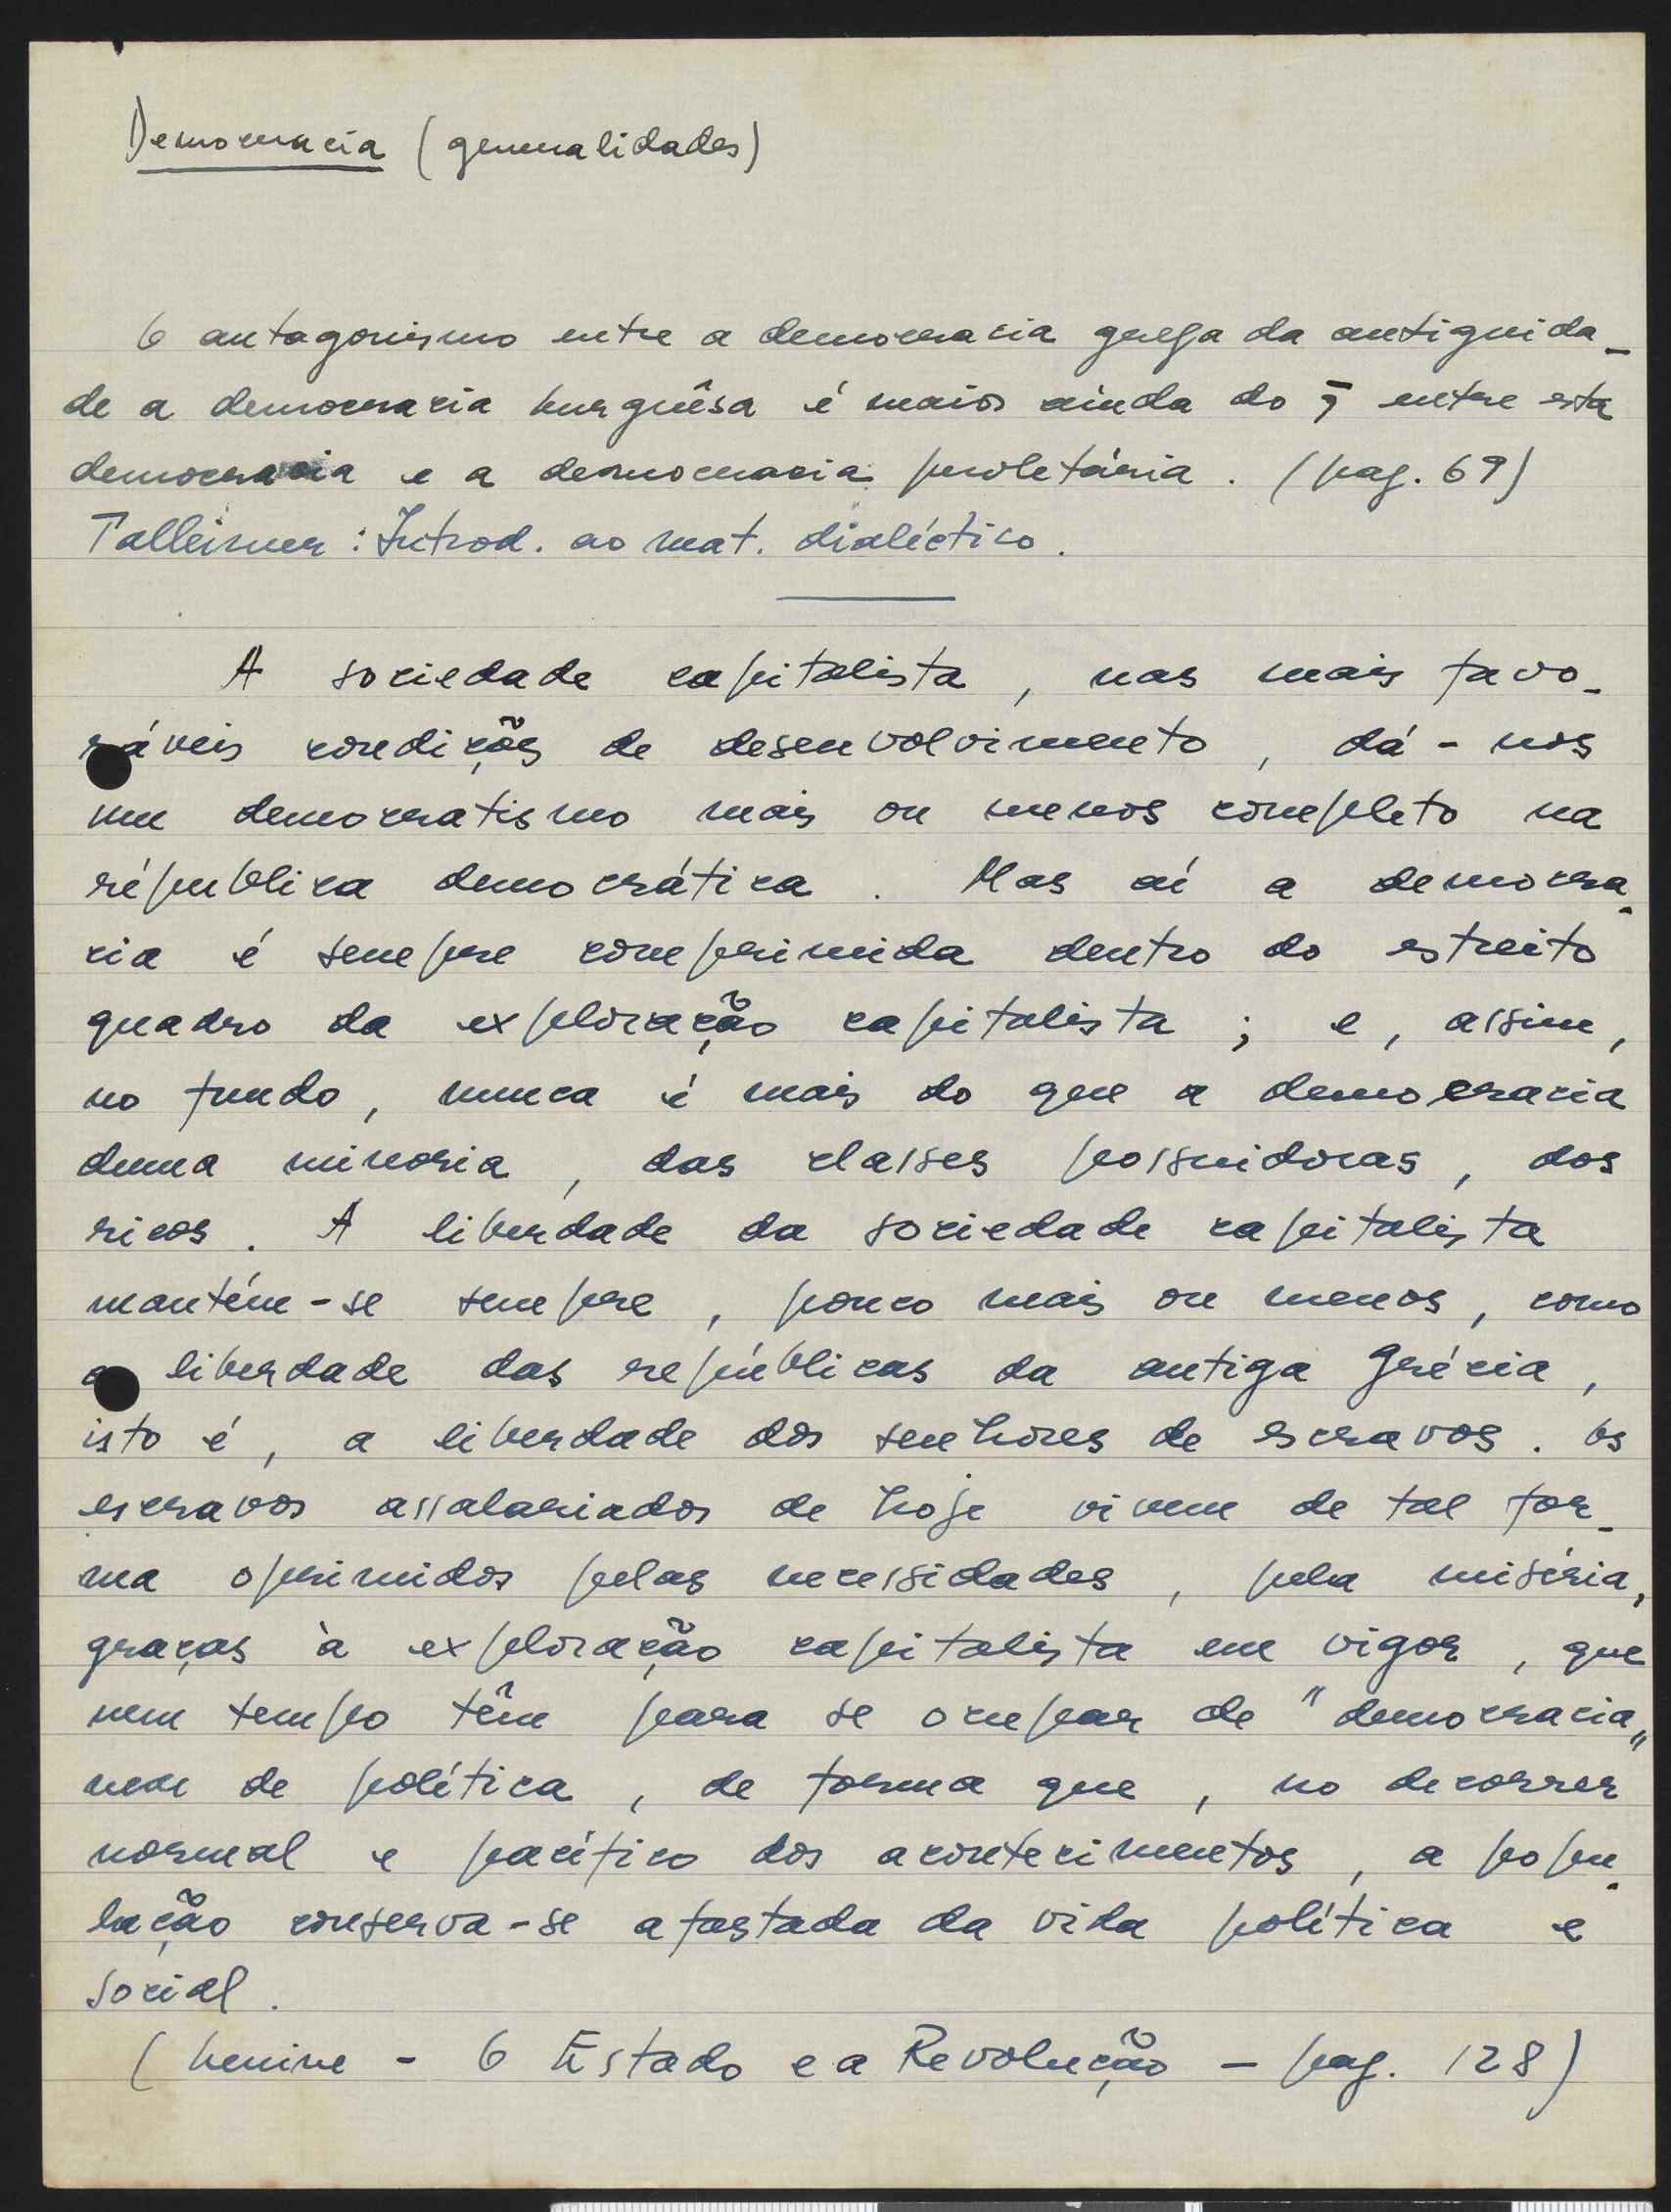 Democracia (generalidades)
O antagonismo entre a democracia grega da antiguida-
de a democracia burguêsa é maior ainda do q̄ entre esta
democracia e a democracia proletária. (pag. 69)
Talleimer: Introd. ao mat. dialéctico.
A sociedade capitalista, nas mais favo-
ráveis condições de desenvolvimento, dá-nos
um democratismo mais ou menos completo na
républica democrática. Mas aí a democra-
cia é sempre comprimida dentro do estreito
quadro da exploração capitalista; e, assim,
no fundo, nunca é mais do que a democracia
duma minoria, das classes possuidoras, dos
ricos. A liberdade da sociedade capitalista
mantém-se sempre, pouco mais ou menos, como
a liberdade das repúblicas da antiga Grécia,
isto é, a liberdade dos senhores de escravos. Os
escravos assalariados de hoje vivem de tal for-
ma oprimidos pelas necessidades, pela miséria,
graças à exploração capitalista em vigor, que
nem tempo têm para se ocupar de "democracia"
nem de política, de forma que, no decorrer
normal e pacífico dos acontecimentos, a popu-
lação conserva-se afastada da vida política e
social.
(Lenine - O Estado e a Revolução - pag. 128)